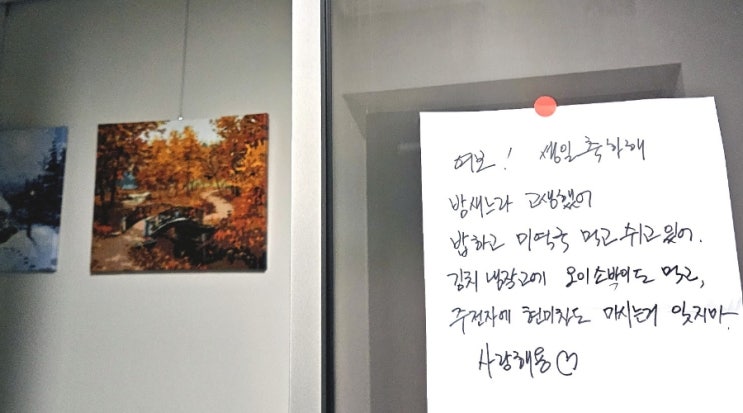 여보! 생일 축하해
밤새느라 고생했어
밥하고 미역국 먹고 쉬고 있어.
김치 냉장고에 오이소박이도 먹고,
주전자에 현미차도 마시는거 잊지마.
사랑해용♡